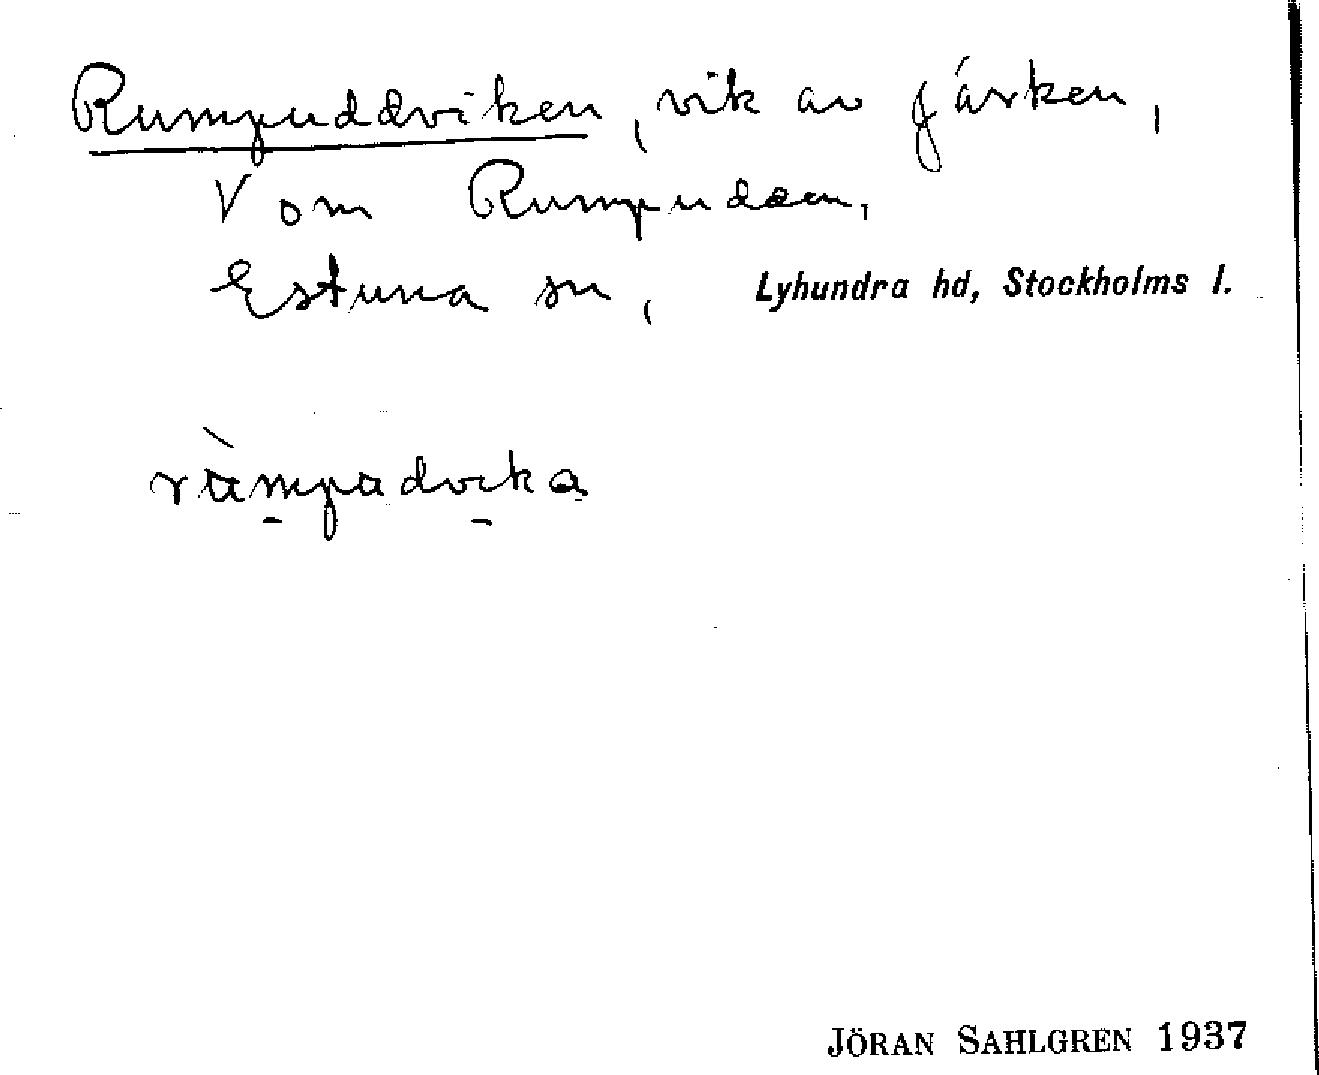 Rumpuddviken, vik av Järken,
V om Rumpudden,
Estuna sn, Lyhundra hd, Stockholms l.
JÖRAN SAHLGREN 1937